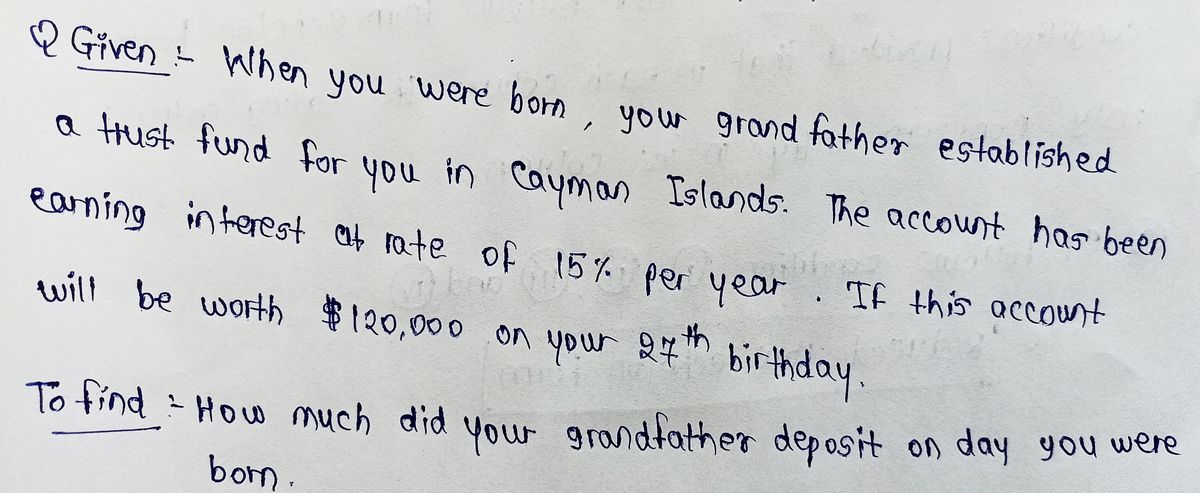 Q Given :- When you were born, your grand father established
a trust fund for you in Cayman Islands. The account has been
earning interest at rate of 15% per year. If this account
will be worth $120,000 on your 27th birthday.
To find :- How much did your grandfather deposit on day you were
born.